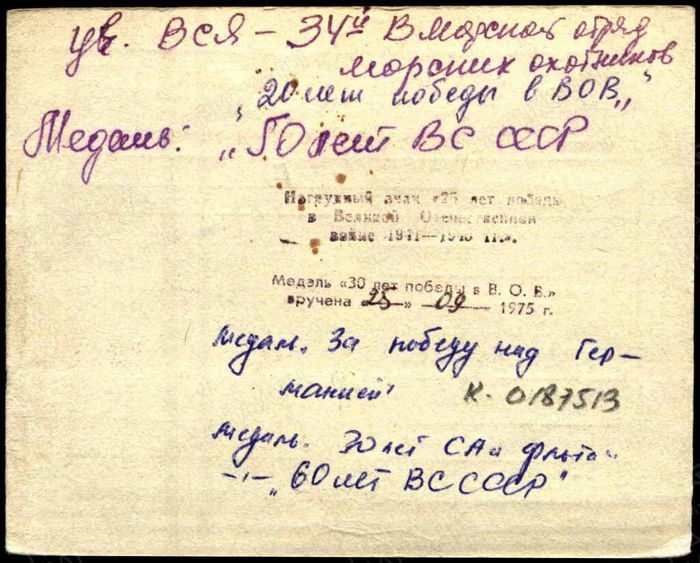 ув. ВСЯ – 34й
морских охотников
"20 лет победы в ВОВ"
Медаль: "50 лет ВС СССР
Нагрудный знак «25 лет победы
в Великой Отечественной
войне 1941—1945 гг.».
Медаль «30 лет победы в В. О. В.»
вручена «25» 09 1975 г.
медаль. За победу над Гер-
манией"
К. 0187513
медаль. 30 лет СА и флота
–"– "60 лет ВС СССР"